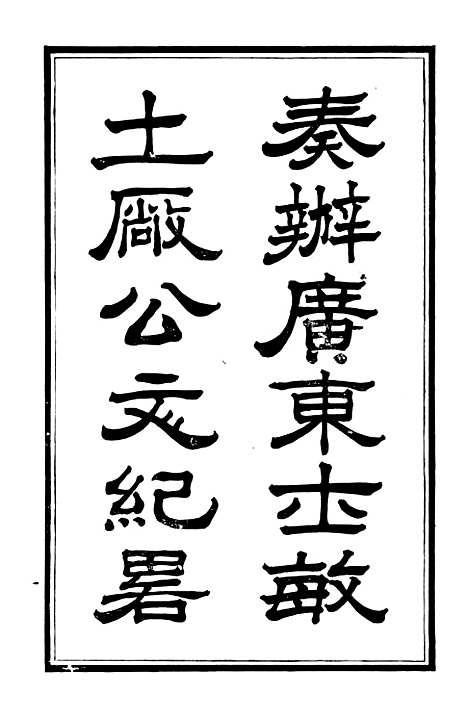 奏辦廣東士敏
土厰公文紀畧